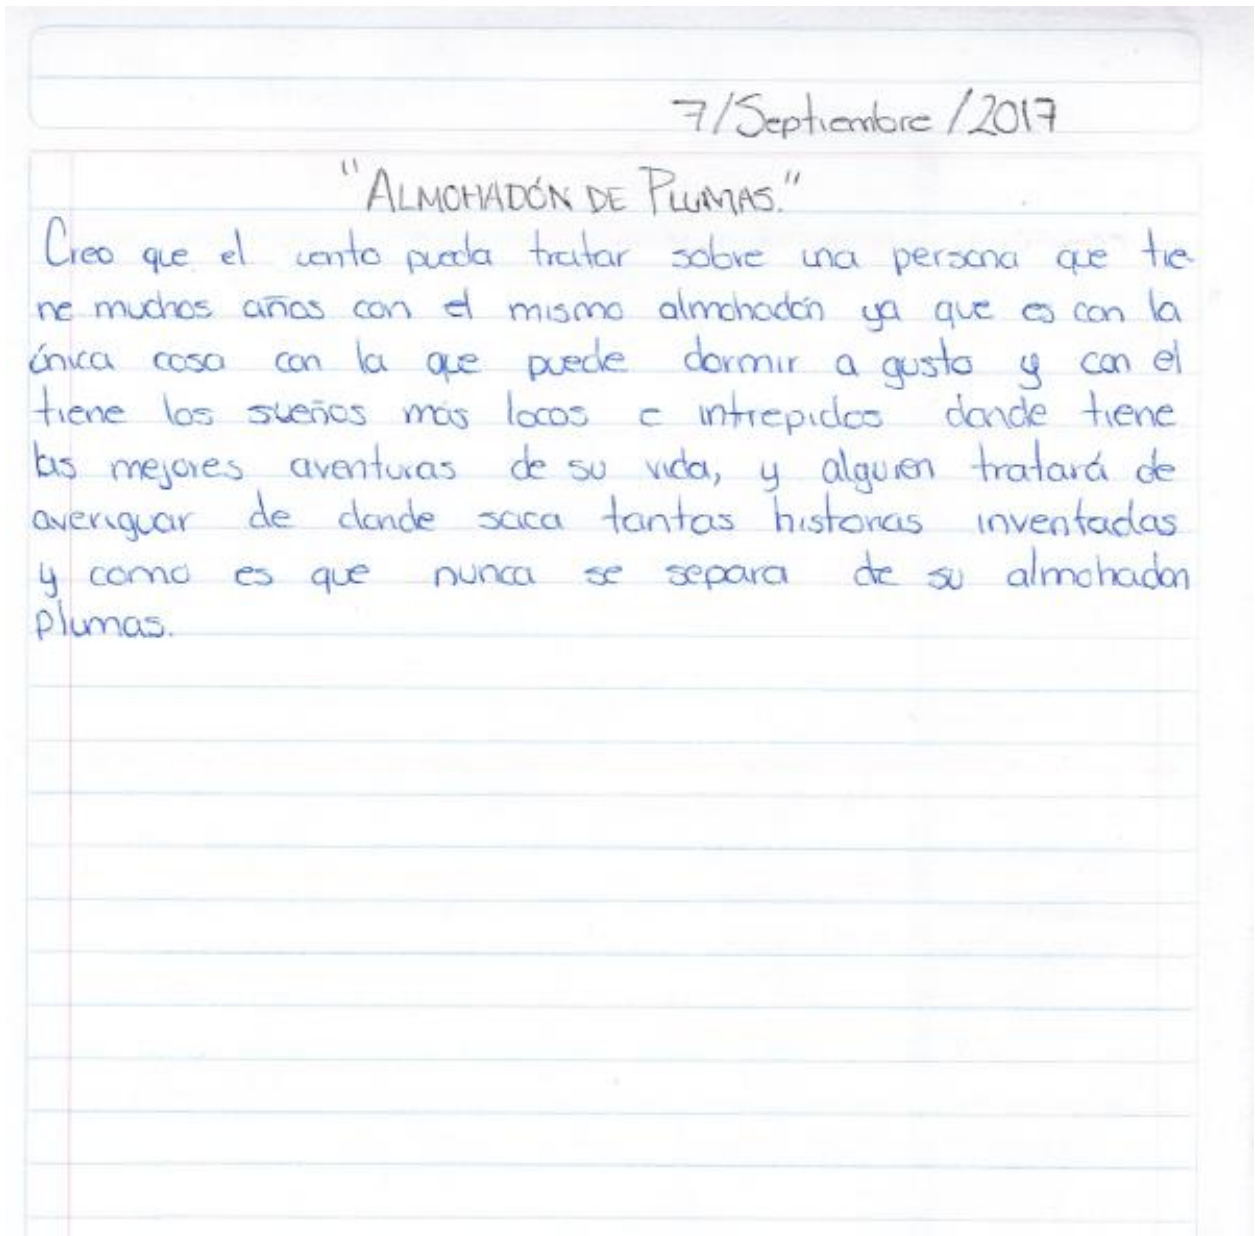 7/Septiembre/2017
"ALMOHADÓN DE PLUMAS."
Creo que el cento pueda tratar sobre una persona que tie-
ne muchos años con el mismo almohadón ya que es con la
única cosa con la que puede dormir a gusto y con el
tiene los sueños más locos e intrepidos donde tiene
las mejores aventuras de su vida, y alguien tratará de
averiguar de donde saca tantas historias inventadas
y como es que nunca se separa de su almohadon
plumas.